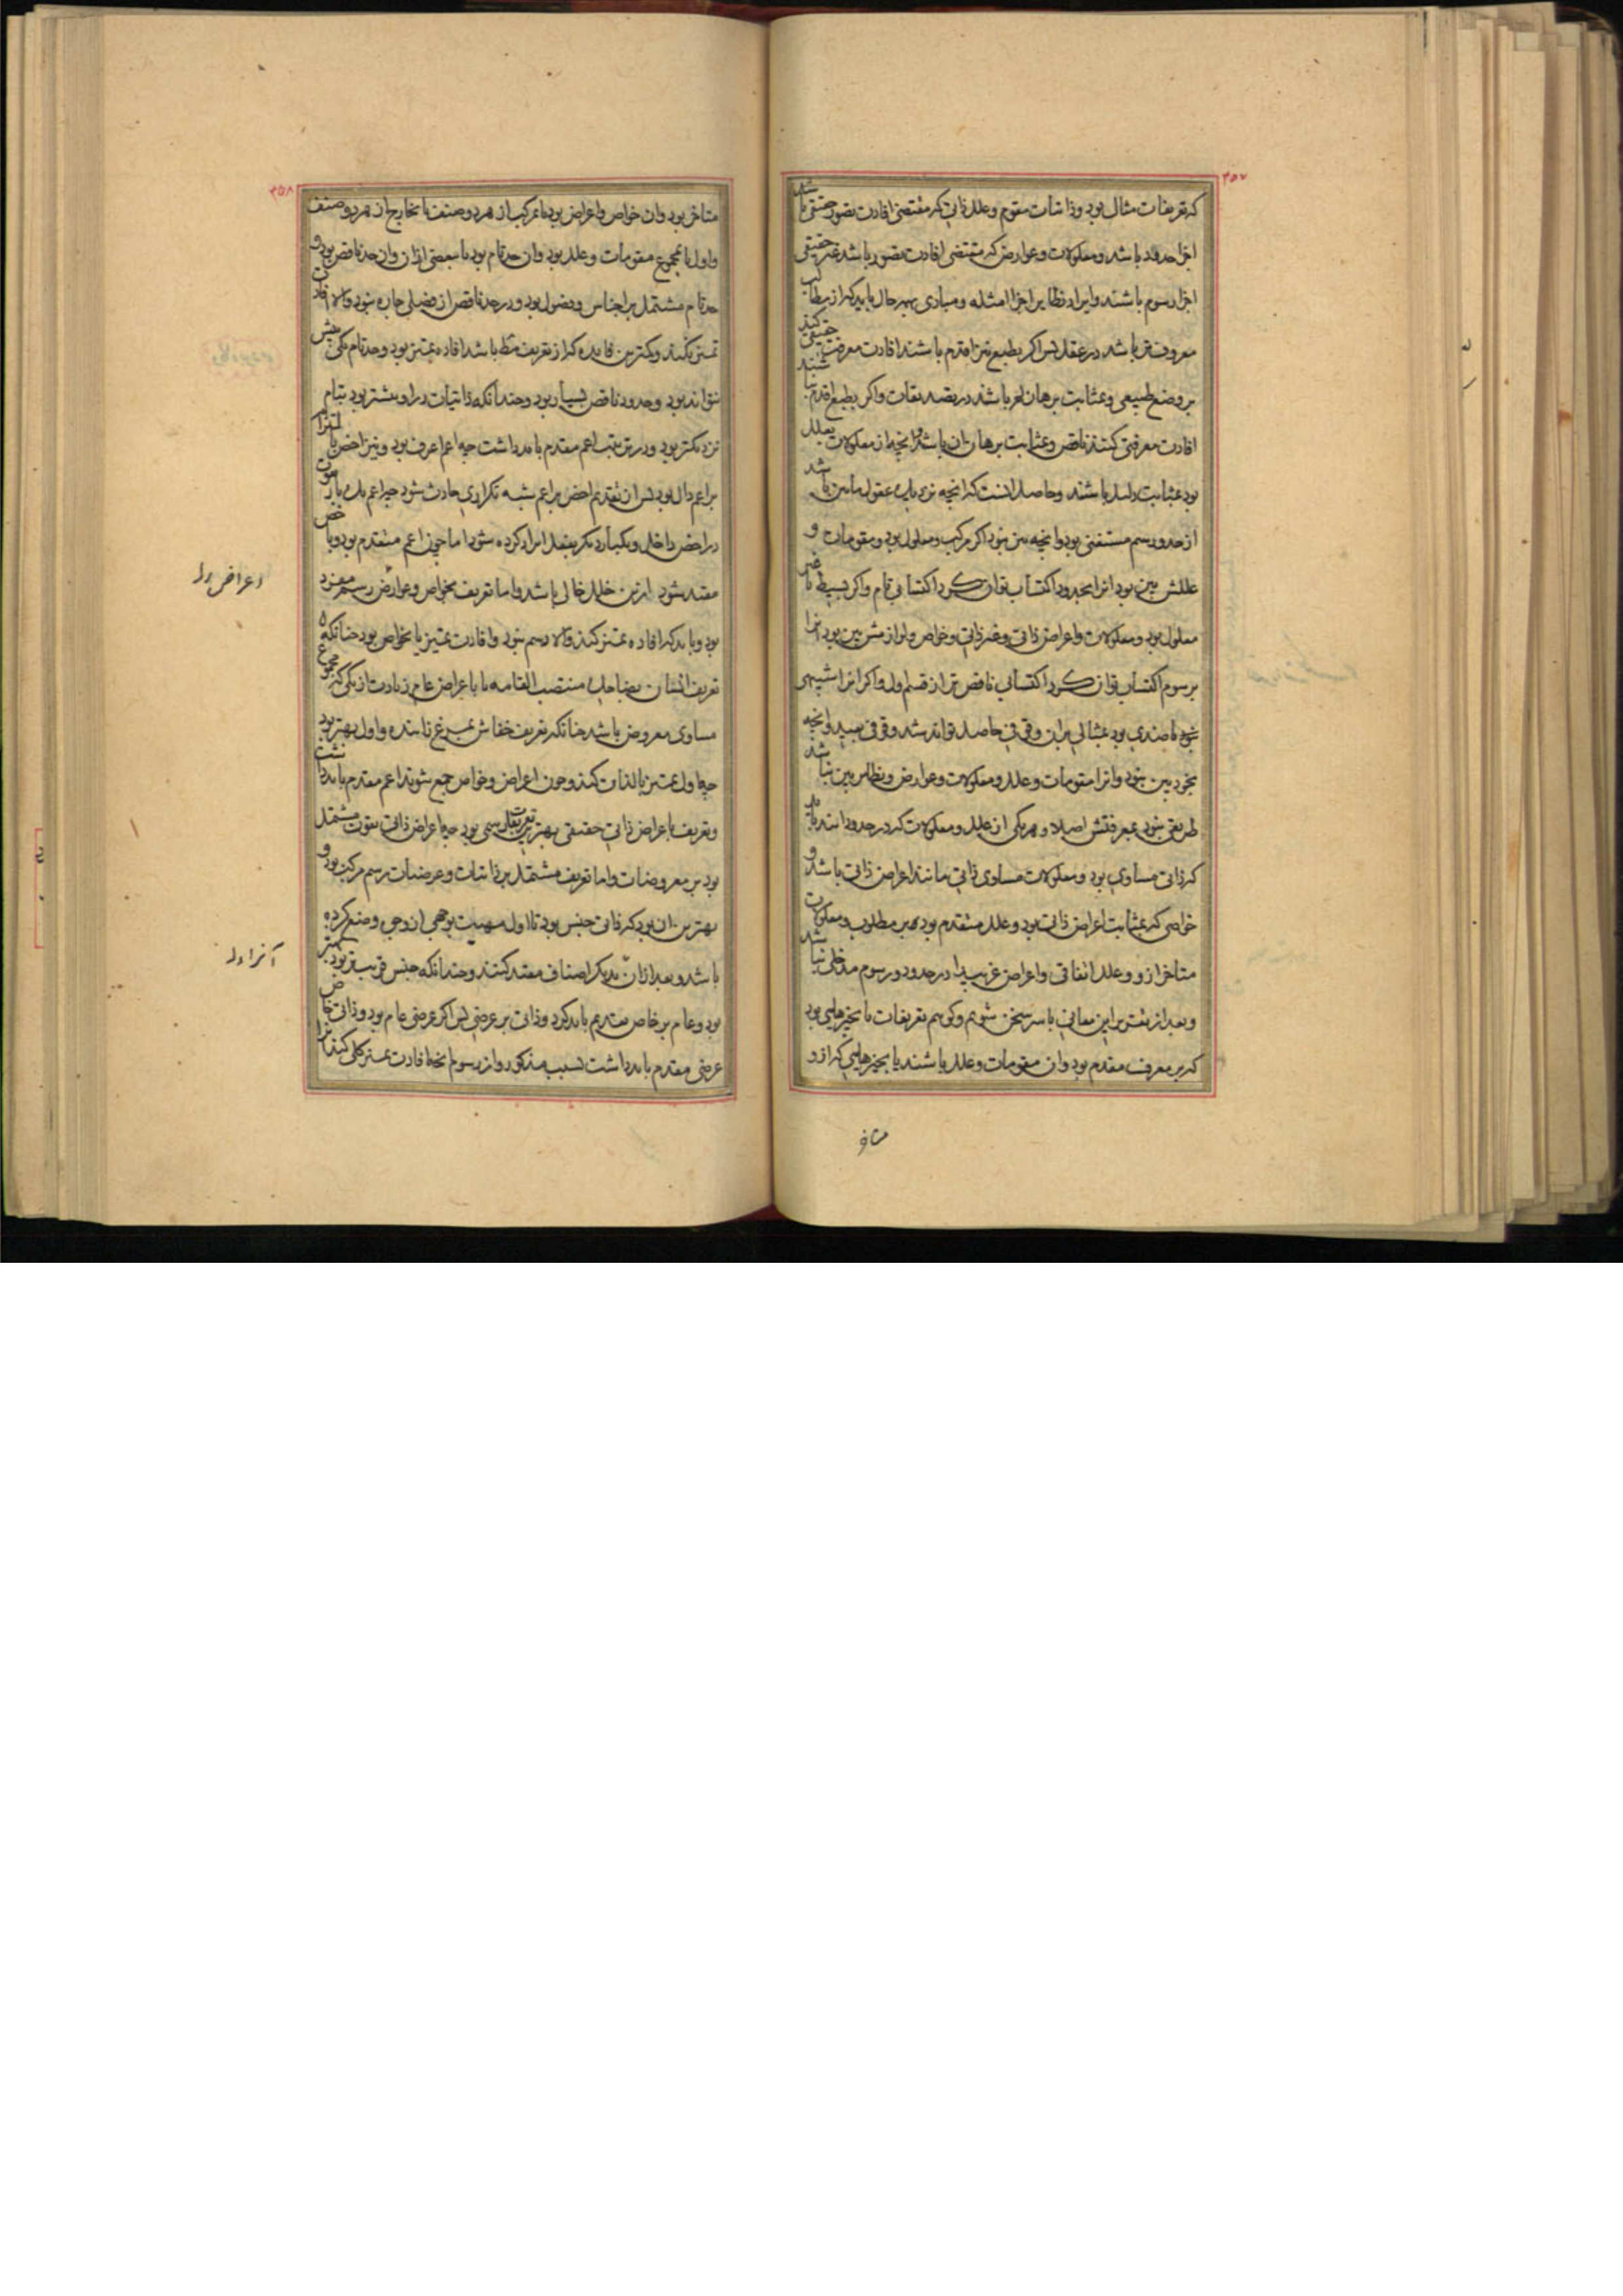 ۳۵۷
که تعریفات مثال بود و ذاتیات مقوم و علل ذاتی که مقتضی افادت تصور حقیقی باشد
اجزا حد باشد و معلولات و عوارض که مقتضی افادت تصور باشد غیر حقیقی
اجزا رسوم باشند و ایراد نظایر اجزا امثله و مبادی بهر حال باید که از مطالب
معروفتر باشد در عقل پس اگر بطبع نیز اقدم باشند افادت معرفت حقیقی کنند
بر وضع طبیعی و بمثابت برهان لم باشند در تصدیقات و اگر بطبع اقدم نباشند
افادت معرفتی کنند ناقص و بمثابت برهان ان باشد و انچه از معلولات بعلل
بود بمثابت دلیل باشند و حاصل انست که انچه نزدیک عقول ما بین باشد
از حد و رسم مستغنی بود و انچه بین نبود اگر مرکب و معلول بود و مقومات و
عللش بین بود انرا بحدود اکتساب توان کرد اکتسابی تام و اگر بسیط یا غیر
معلول بود و معلولات و اعراض ذاتی و غیر ذاتی و خواص و لوازمش بین بود انرا
برسوم اکتساب توان کرد اکتسابی ناقص تر از قسم اول و اگر انرا شبیهی
یا ضدی بود بمثالی بران وقوفی حاصل تواند شد وقوفی بعید و انچه
بخود بین نبود و انرا مقومات و علل و معلولات و عوارض و نظایر بین نباشد
طریقی نبود بمعرفتش اصلا و هر یکی از علل و معلولات که در حدود افتد باید
که ذاتی مساوی بود و معلولات مساوی ذاتی مانند اعراض ذاتی باشد و
خواصی که بمثابت اعراض ذاتی بود و علل متقدم بود بر مطلوب و معلولات
متاخر ازو و علل اتفاقی و اعراض غریب را در حدود و رسوم مدخلی نباشد
و بعد از تقریر این معانی با سر سخن شویم و گویم تعریفات یا بچیزهایی بود
که بر معرف مقدم بود و ان مقومات و علل باشند یا بچیزهایی که ازو
متاخر
۳۵۸
متاخر بود و ان خواص و اعراض بود یا مرکب از هر دو صنف یا بخارج از هر دو صنف
و اول یا مجموع مقومات و علل بود و ان حد تام بود یا بعضی ازان و ان حد ناقص بود و
حد تام مشتمل بر اجناس و فصول بود و در حد ناقص از فصلی چاره نبود و الا افادت
تمیز نکند و کمترین فایده که از تعریف مطلوب باشد افاده تمیز بود و حد تام یکی بیش
نتواند بود و حدود ناقص بسیار بود و چندانکه ذاتیات درو بیشتر بود بتام
نزدیکتر بود و در ترتیب اعم مقدم باید داشت چه اعم اعرف بود و نیز اخص بالتزام
بر اعم دال بود پس از تقدیم اخص بر اعم شبه تکراری حادث شود چه اعم یکبار بقوت
در اخص داخل و یکبار دیگر بفعل ایراد کرده شود اما چون اعم متقدم بود و باخص
مقید شود ازین خلل خالی باشد و اما تعریف بخواص و عوارض رسم مفرد
بود و باید که افاده تمیز کند و الا رسم نبود و افادت تمیز یا بخواص بود چنانکه
تعریف انسان بضاحک منتصب القامه یا باعراض عام زیادت از یکی که مجموع
مساوی معروض باشد چنانکه تعریف خفاش بمرغ زاینده و اول بهتر بود
چه اول تمیز بالذات کند و چون اعراض و خواص جمع شوند اعم مقدم باید داشت
و تعریف باعراض ذاتی حقیقی بهترین تعریفات رسمی بود چه اعراض ذاتی بقوت مشتمل
بود بر معروضات و اما تعریف مشتمل بر ذاتیات و عرضیات رسم مرکب بود و
بهترین ان بود که ذاتی جنس بود تا اول مهیت بوجهی از وجوه وضع کرده
باشد و بعد ازان بدیگر اصناف مقید کنند و چندانکه جنس قریب تر بود بهتر
بود و عام بر خاص تقدیم باید کرد و ذاتی بر عرضی پس اگر عرضی عام بود و ذاتی خاص
عرضی مقدم باید داشت بسبب مذکور و از رسوم انچه افادت تمیز کلی کند انرا
اعراض را
آنرا اول